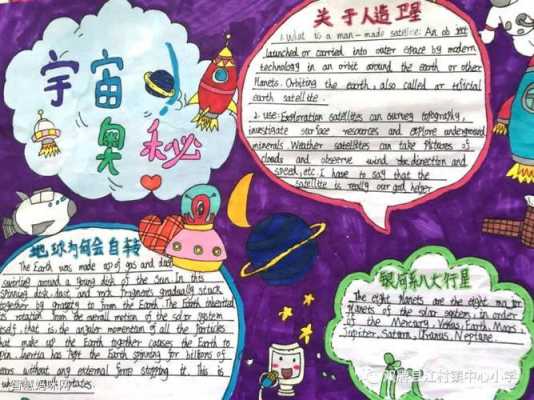 宇宙
奥秘
关于人造卫星
1. What is a man-made satellite: An ob ect
launched or carried into outer space by modern
technology in an orbit around the earth or other
Planets. Orbiting the earth, also called ar tificial
earth satellite.
2. use: Exploration satellites can survey topography,
investigate surface resources and explore underground
minerals Weather satellites can take Pictures of
clouds and observe wind direction and
speed, etc. I have to say that the
satellite is really our god helper
地球为何会自转
The Earth was made up of gas and dust
swirling around a young disk of the Sun. In this
spinning disk, dust and rock fragments gradually stuck
together by gravity to from the Earth. The Earth inherited
its rotation from the overall motion of the solar system
itself, that is, the angular momention of all the Particles
that make up the Earth together causes the Earth to
spin. inertia has kept the Earth spinning for billions of
years without any external Jorp stopping it. This is
why rotates.
银河系八大行星
The eight Planets are the eight ma jor
planets of the solar system, in order
of the Mercury, Venus, Earth, Mars
Jupiter, Saturn, Uranus, Neptune.
智慧妈咪网
县江村镇中心小学